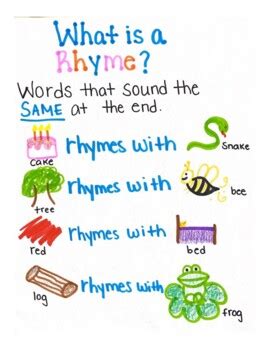 What is a
Rhyme?
Words that sound the
SAME at the end.
cake rhymes with snake
tree rhymes with bee
red rhymes with bed
log rhymes with frog